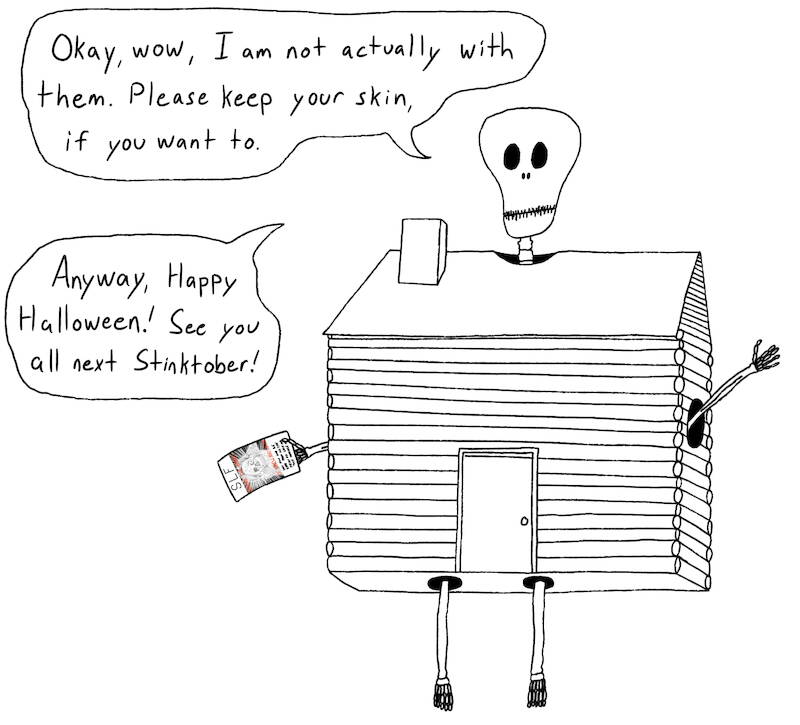 Okay, wow, I am not actually with
them. Please keep your skin,
if you want to.
Anyway, Happy
Halloween! See you
all next Stinktober!
SLF